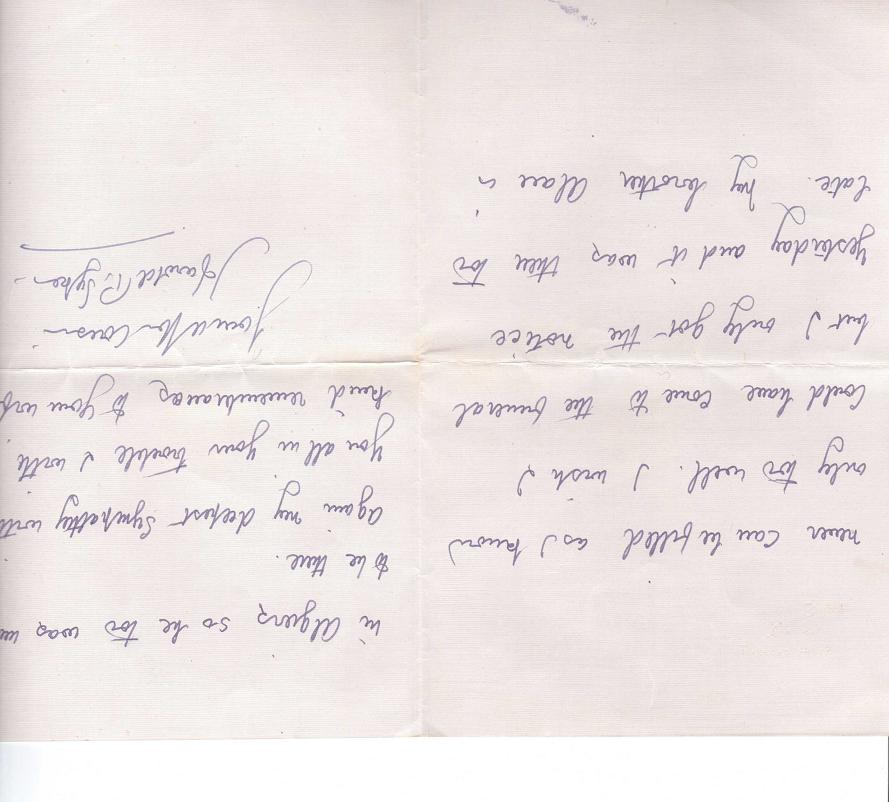 never can be filled as I know
only too well. I wish I
could have come to the funeral
but I only got the notice
yesterday and it was then too
late. My brother Alan is
in Algiers, so he too was un
to be there.
Again my deepest sympathy with
you all in your trouble & with
kind remembrances to your
Your affte Cousin
Harold P. Sykes